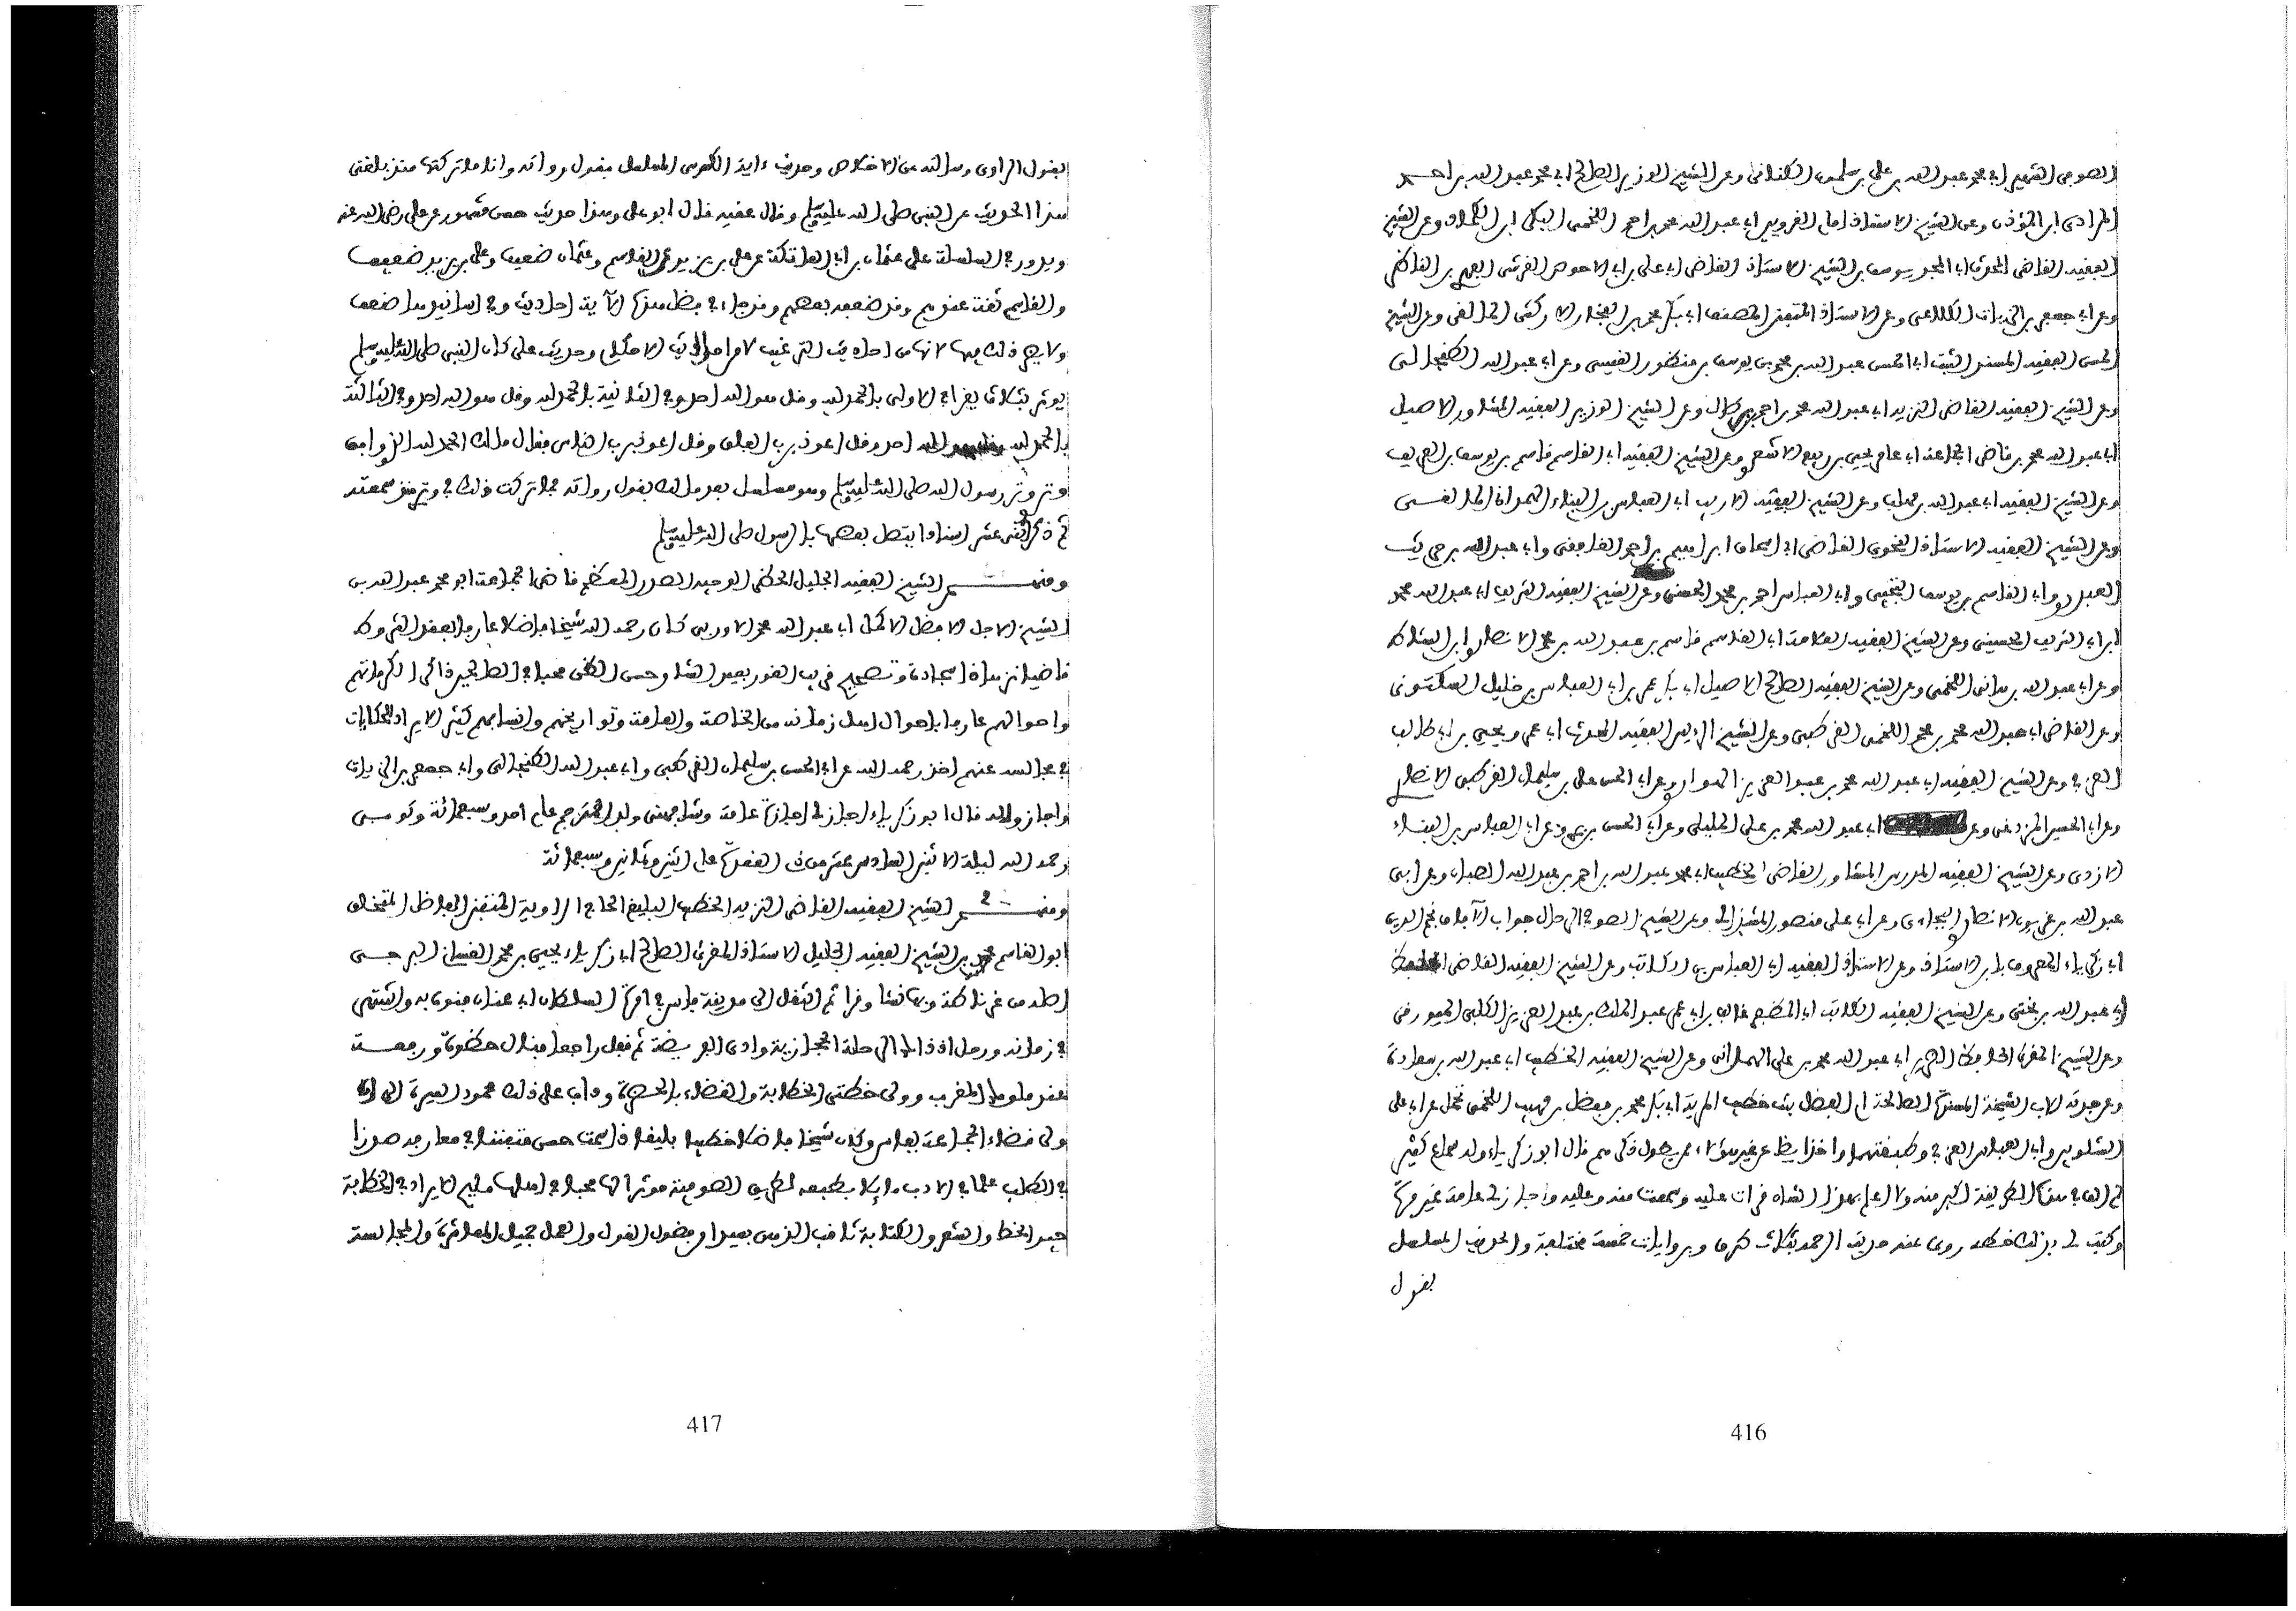 الصوفي الشهير ابي محمد عبد الله بن علي بن سلمون الكناني وعن الشيخ الوزير الصالح ابي محمد عبد الله بن احمد
المرادي ابن المؤذن وعن الشيخ الاستاذ امام الفرويين ابي عبد الله محمد بن احمد اللخمي البكي ابن الكماد وعن الشيخ
الفقيه القاضي المحدث ابي المجد يوسف بن الشيخ الاستاذ القاضي ابي علي بن ابي الاحوص القرشي الفهري بن الناظر
وعن ابي جعفر بن الزيات الكلاعي وعن الاستاذ المتفنن المصنف ابي بكر محمد بن الفخار الاركشي المالقي وعن الشيخ
الحسن الفقيه المسند الثبت ابي الحسن عبد الله بن محمد بن يوسف بن منظور القيسي وعن ابي عبد الله الطنجالي
وعن الشيخ الفقيه القاضي النزيه ابي عبد الله محمد بن احمد بن كال وعن الشيخ الوزير الفقيه المشاور الاصيل
ابي عبد الله محمد بن قاضي الجماعة ابي عامر يحيى بن ربيع الاشعري وعن الشيخ الفقيه ابي القاسم قاسم بن يوسف بن العريف
وعن الشيخ الفقيه ابي عبد الله بن وعن الشيخ الفقيه الاريب ابي العباس بن البناء المالقي
وعن الشيخ الفقيه الاستاذ النحوي القاضي ابي اسحاق ابراهيم بن احمد الغافقي وابي عبد الله بن حريث
العبدري وابي القاسم بن يوسف التجيبي وابي العباس احمد بن محمد الحسني وعن الشيخ الفقيه الشريف ابي عبد الله محمد
ابن ابي الشريف الحسيني وعن الشيخ الفقيه العلامة ابي القاسم قاسم بن عبد الله بن محمد الانصاري ابن الشاط
وعن ابي عبد الله بن هاني اللخمي وعن الشيخ الفقيه الصالح الاصيل ابي بكر بن ابي العباس بن خليل السكوني
وعن القاضي ابي عبد الله محمد بن محمد اللخمي القرطبي وعن الشيخ الرئيس الفقيه المحدث ابي عمرو يحيى بن ابي طالب
العزفي وعن الشيخ الفقيه ابي عبد الله محمد بن عبد العزيز وعن ابي الحسن علي بن سليمان القرطبي الانصاري
وعن ابي الحسين المزدغي وعن ابي عبد الله محمد بن علي وعن ابي الحسن بن بري وعن ابي العباس بن البناء
الازدي وعن الشيخ الفقيه المدرس المشاور القاضي الخطيب ابي محمد عبد الله بن احمد بن عبد الله وعن ابي
عبد الله بن غريون الانصاري البجاءي وعن ابي علي منصور المشذالي وعن الشيخ الصوفي الرحال جواب الآفاق نجم الدين
ابي زكرياء المعروف بابن الاستاذ وعن الاستاذ الفقيه ابي العباس بن الكاتب وعن الشيخ الفقيه القاضي
ابي عبد الله بن بختي وعن الشيخ الفقيه الكاتب ابي المطرف غالب بن ابي عمر عبد الملك بن عبد العزيز الكلبي الميورقي
وعن الشيخ المقرئ الحافظ الضرير ابي عبد الله محمد بن علي وعن الشيخ الفقيه الخطيب ابي عبد الله بن سعادة
وعن جدته للاب الشيخة المسندة الصالحة ام الفضل بنت خطيب المرية ابي بكر محمد بن مفضل بن مهيب اللخمي تحمل عن ابي علي
الشلوبين وابي العباس العزفي وطبقتهما واخذ ايضا عن غير هؤلاء ممن يطول ذكرهم قال ابو زكرياء وله سماع كثير
لم الف في هذه الطريقة اكبر منه ولا اعلم بهذا الشان قرات عليه وسمعت منه وعليه واجاز لي عامة غير مرة
وكتب لي بذلك خطه روى عنه حديث الرحمة بثلاث طرق وبروايات خمسة مختلفة والحديث المسلسل
بقول
416
بقول الراوي وسالته عن الاخلاص وحديث ءاية الكرسي المسلسل بقول رواته وانا ما تركتها منذ بلغني
هذا الحديث عن النبي صلى الله عليه وسلم وقال عقبه قال ابو علي وهذا حديث حسن مشهور عن علي رضي الله عنه
ويدور في السلسلة على عثمان بن ابي العاتكة عن علي بن يزيد عن القاسم وعثمان ضعيف وعلي بن يزيد ضعيف
والقاسم ثقة عندهم وقد ضعفه بعضهم وقد جاء في فضل هذه الآية احاديث وفي اسانيدها ضعف
ولا يضر ذلك فيها لانها من احاديث الترغيب لا من احاديث الاحكام وحديث علي كان النبي صلى الله عليه وسلم
يوتر بثلاث يقرا في الاولى بالحمد لله وقل هو الله احد وفي الثانية بالحمد لله وقل هو الله احد وفي الثالثة
بالحمد لله احد وقل اعوذ برب الفلق وقل اعوذ برب الناس فقال مالك الحمد لله الذي وافق
وتري وتر رسول الله صلى الله عليه وسلم وهو مسلسل بعد مالك بقول رواته فما تركت ذلك في وتري منذ سمعته
ثم ذكر اثني عشر اسنادا يتصل بعضها بالرسول صلى الله عليه وسلم
ومنهم الشيخ الفقيه الجليل الحظي الوجيه الصدر المعظم قاضي الجماعة ابو محمد عبد الله بن
الشيخ الاجل الافضل الاكمل ابي عبد الله محمد الاوربي كان رحمه الله شيخا فاضلا عارفا بعقد الشروط
قاضيا نزيها ذا سجادة وتصميم قريب الغور بعيد الشاو حسن الظن محبا في الصالحين ذاكرا لكراماتهم
واحوالهم عارفا باحوال اهل زمانه من الخاصة والعامة وتواريخهم وانسابهم كثير الايراد للحكايات
في مجالسه عنهم اخذ رحمه الله عن ابي الحسن بن سليمان القرطبي وابي عبد الله الطنجالي وابي جعفر بن الزيات
واجازوا له قال ابو زكرياء اجاز لي اجازة عامة وشافهني ولد المترجم عام احد وسبعمائة وتوفي
رحمه الله ليلة الاثنين السادس عشر من ذي القعدة عام اثنين وثمانين وسبعمائة
ومنهم الشيخ الفقيه القاضي النزيه الخطيب البليغ الحاج الراوية المتفنن الفاضل المتخلق
ابو القاسم محمد بن الشيخ الفقيه الجليل الاستاذ المقرئ الصالح ابي زكرياء يحيى بن محمد الغساني البرجي
اصله من غرناطة وبها نشا وقرا ثم انتقل الى مدينة فاس في امرة السلطان ابي عنان فنوه به واشتهر
في زمانه ورحل اذ ذاك الرحلة الحجازية وادى الفريضة ثم قفل راجعا فنال حظوة ورفعة
عند ملوك المغرب وولي خطتي الخطابة والقضاء بالحضرة وداب على ذلك محمود السيرة الى ان
ولي قضاء الجماعة بفاس وكان شيخا فاضلا خطيبا بليغا ذا سمت حسن متفننا في معارفه صدرا
في الطب علما في الادب مائلا بطبعه لطريق الصوفية موثرا لها محبا في اهلها مليح الايراد في الخطابة
جيد الخط والشعر والكتابة ثاقب الذهن بعيدا من فضول القول والعمل جميل المعاشرة والمجالسة
417